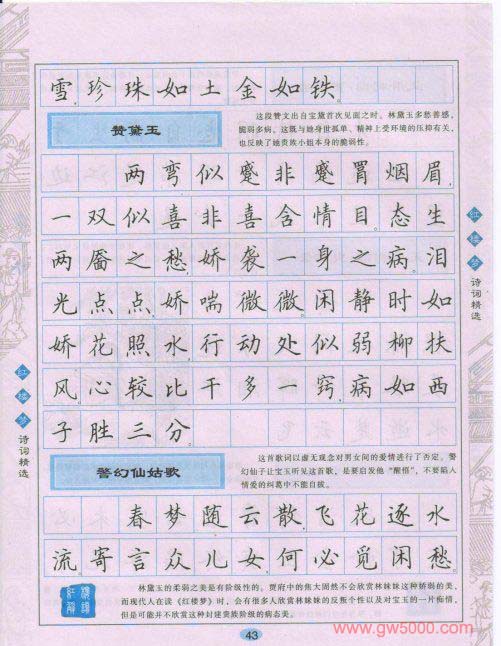 雪，珍珠如土金如铁。
赞黛玉
这段赞文出自宝黛首次见面之时。林黛玉多愁善感，
脆弱多病。这既与她身世孤单、精神上受环境的压抑有关，
也反映了她贵族小姐本身的脆弱性。
两弯似蹙非蹙罥烟眉，
一双似喜非喜含情目。态生
两靥之愁，娇袭一身之病。泪
光点点，娇喘微微。闲静时如
娇花照水，行动处似弱柳扶
风。心较比干多一窍，病如西
子胜三分。
警幻仙姑歌
这首歌词以虚无观念对男女间的爱情进行了否定。警
幻仙子让宝玉听见这首歌，是要启发他“醒悟”，不要陷入
情爱的纠葛中不能自拔。
春梦随云散，飞花逐水
流，寄言众儿女，何必觅闲愁。
林黛玉的柔弱之美是有阶级性的。贾府中的焦大固然不会欣赏林妹妹这种娇弱的美，
而现代人在读《红楼梦》时，会有很多人欣赏林妹妹的反叛个性以及对宝玉的一片痴情，
但是可能并不欣赏这种封建贵族阶级的病态美。
红楼梦
诗词精选
红楼梦
诗词精选
43
www.gw5000.com